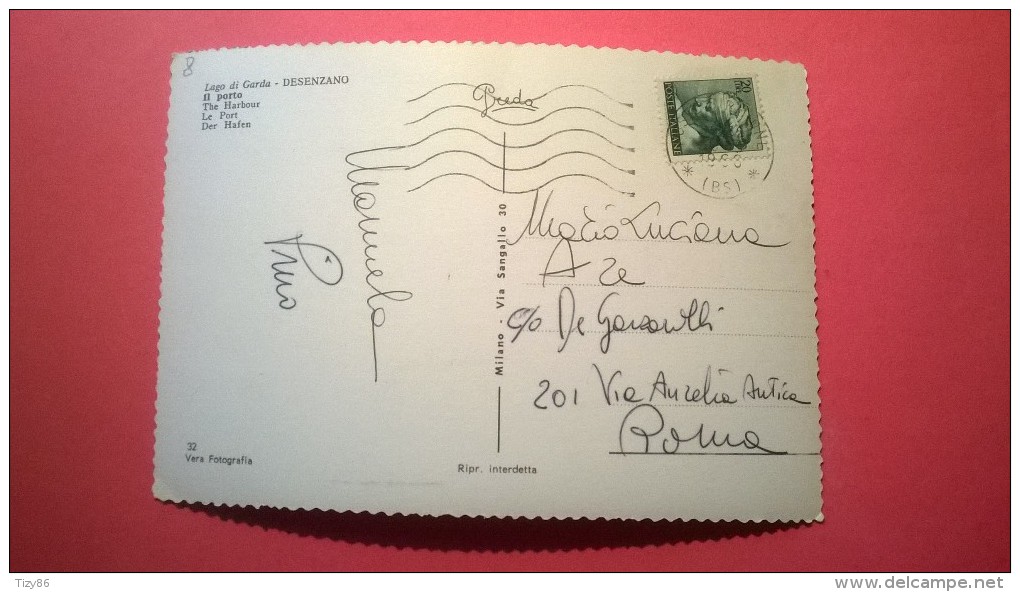 8
Lago di Garda - DESENZANO
Il porto
The Harbour
Le Port
Der Hafen
20
POSTE ITALIANE
(BS)
Manuela
Pino
Milano - Via Sangallo 30
Luciana
c/o De
201 Via Aurelia Antica
Roma
32
Vera Fotografia
Ripr. interdetta
Tizy86
www.delcampe.net